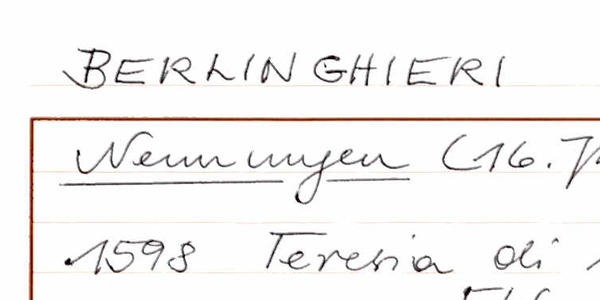 BERLINGHIERI
Nennungen (16. J
1598 Teresia di